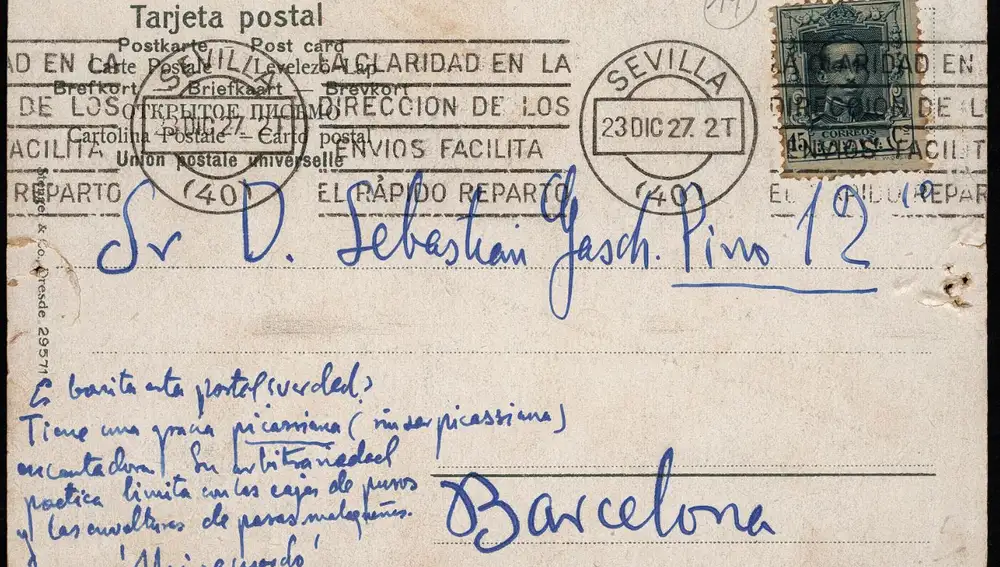 Tarjeta postal
Postkarte Post card
Carte Postale Levelező Lap
Brefkort — Briefkaart — Brevkort
ОТКРЫТОЕ ПИСЬМО
Cartolina Postale — Carto postal
Union postale universelle
14
AD EN LA
DE LOS
FACILITA
REPARTO
SEVILLA
DIC 27
(40)
LA CLARIDAD EN LA
DIRECCION DE LOS
ENVIOS FACILITA
EL RÁPIDO REPARTO
SEVILLA
23 DIC 27. 2T
(40)
LA CLARIDAD EN
DIRECCION DE L
ENVIOS FACILIT
EL RÁPIDO REPAR
15 CORREOS Cs
ESPAÑA
Sr D. Sebastian Gasch. Pino 12
Stengel & Co., Dresde 29571
Es bonita esta postal ¿verdad?
Tiene una gracia picassiana (sin ser picassiana)
encantadora. Su arbitrariedad
poetica limita con las cajas de puros
y las envolturas de pasas malagueñas.
Barcelona